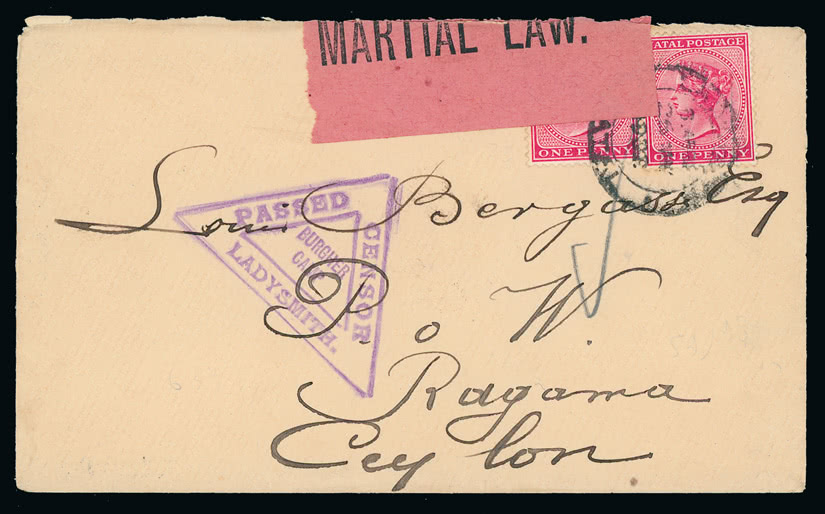 MARTIAL LAW.
NATAL POSTAGE
ONE PENNY
ONE PENNY
PASSED
CENSOR
LADYSMITH.
BURGHER
CAMP
Louis Bergass Esq
P. o W.
Ragama
Ceylon